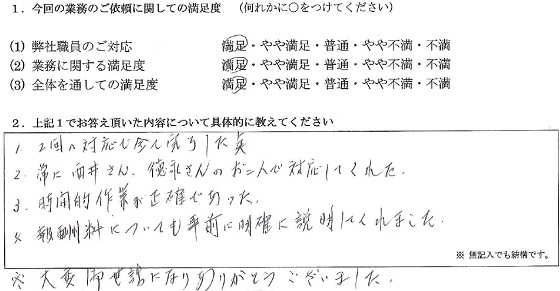 1．今回の業務のご依頼に関しての満足度　（何れかに○をつけてください）
(1) 弊社職員のご対応　満足・やや満足・普通・やや不満・不満
(2) 業務に関する満足度　満足・やや満足・普通・やや不満・不満
(3) 全体を通しての満足度　満足・やや満足・普通・やや不満・不満
2．上記１でお答え頂いた内容について具体的に教えてください
1. 2回の対応も
2. 常に西井さん、徳永さんのお二人で対応してくれた.
3. 時間的作業が正確であった.
4 報酬料についても事前に明確に説明してくれました.
※ 無記入でも結構です。
※ 大変御世話になりありがとうございました.